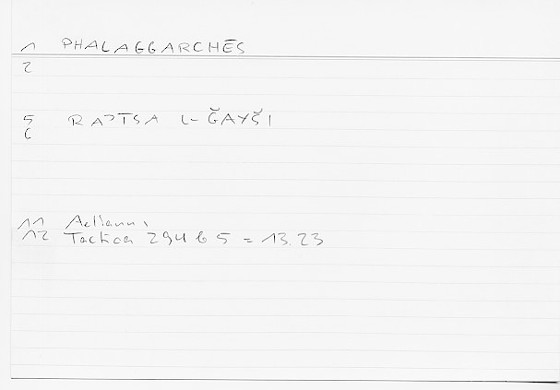 1 PHALAGGARCHĒS
2
5 RAʾĪSA L-ǦAYŠI
6
11 Aelianus,
12 Tactica 294 b 5 = 13.23